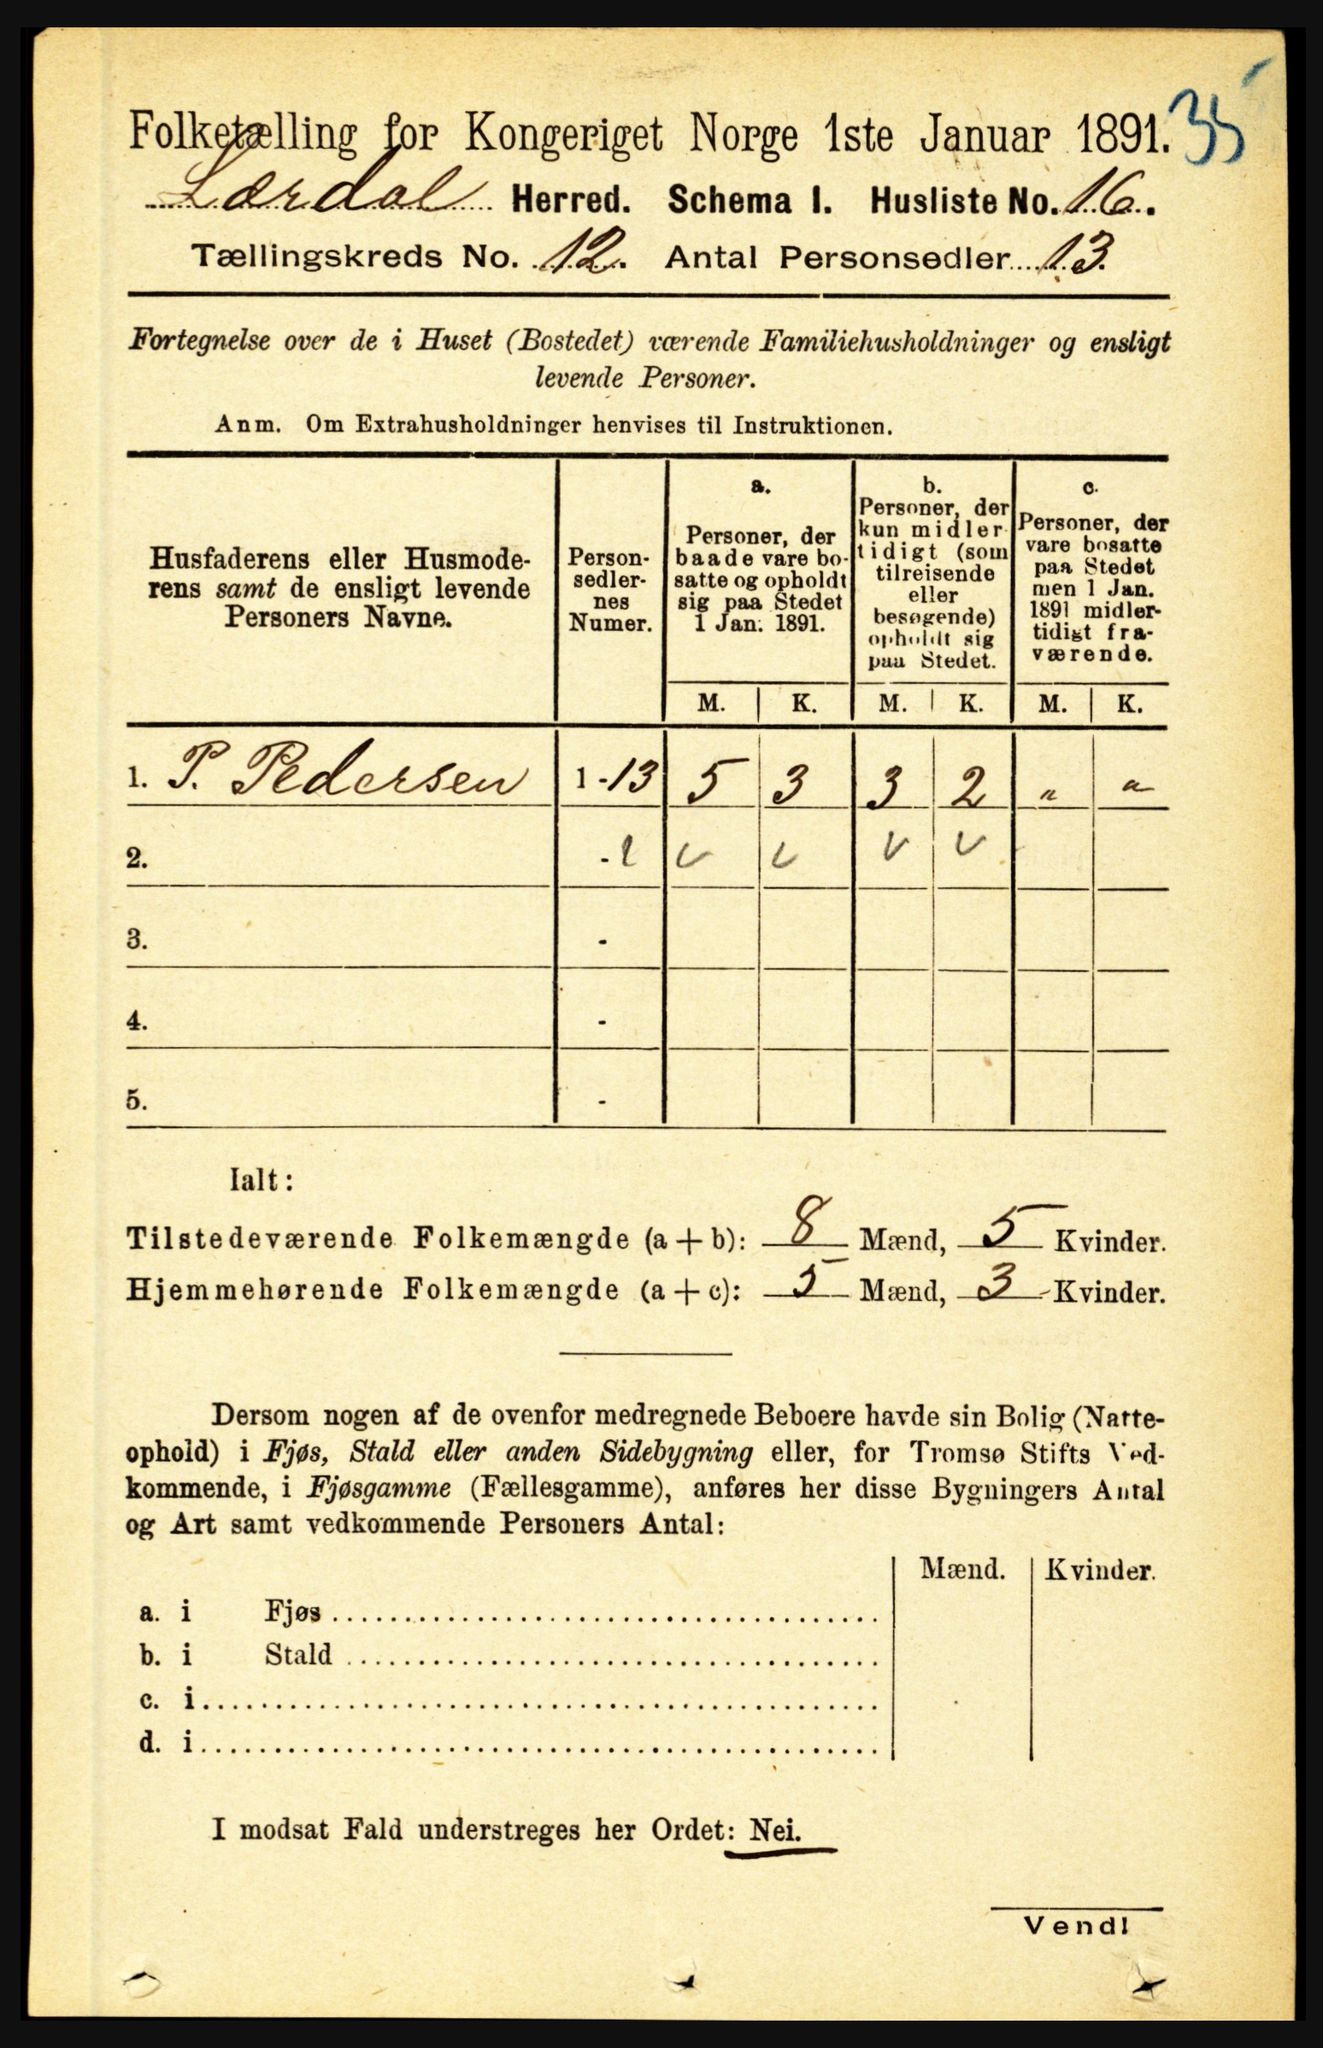 35
Folketælling for Kongeriget Norge 1ste Januar 1891.
Lærdal Herred. Schema I. Husliste No. 16.
Tællingskreds No. 12. Antal Personsedler 13.
Fortegnelse over de i Huset (Bostedet) værende Familiehusholdninger og ensligt
levende Personer.
Anm. Om Extrahusholdninger henvises til Instruktionen.
Husfaderens eller Husmode-
rens samt de ensligt levende
Personers Navne.
Person-
sedler-
nes
Numer.
a.
Personer, der
baade vare bo-
satte og opholdt
sig paa Stedet
1 Jan. 1891.
b.
Personer, der
kun midler
tidigt (som
tilreisende
eller
besøgende)
opholdt sig
paa Stedet.
c.
Personer, der
vare bosatte
paa Stedet
men 1 Jan.
1891 midler-
tidigt fra-
værende.
M. K. M. K. M. K.
1. P. Pedersen 1-13 5 3 3 2 " "
2. -
3. -
4. -
5. -
Ialt:
Tilstedeværende Folkemængde (a+b): 8 Mænd, 5 Kvinder.
Hjemmehørende Folkemængde (a+c): 5 Mænd, 3 Kvinder.
Dersom nogen af de ovenfor medregnede Beboere havde sin Bolig (Natte-
ophold) i Fjøs, Stald eller anden Sidebygning eller, for Tromsø Stifts Ved-
kommende, i Fjøsgamme (Fællesgamme), anføres her disse Bygningers Antal
og Art samt vedkommende Personers Antal:
Mænd. Kvinder.
a. i Fjøs
b. i Stald
c. i
d. i
I modsat Fald understreges her Ordet: Nei.
Vend!